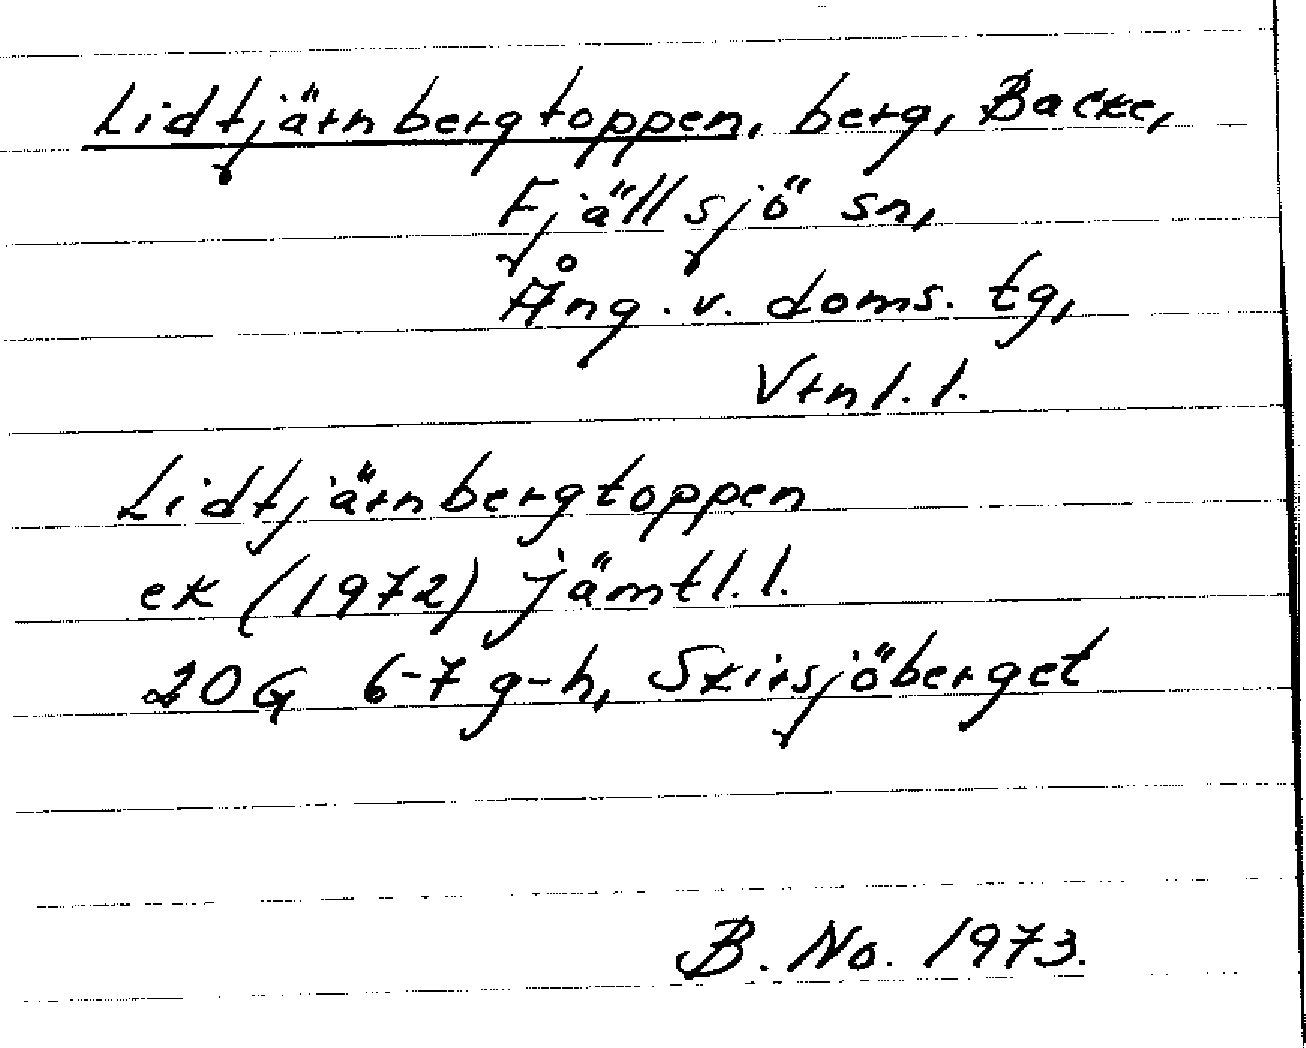 Lidtjärnbergtoppen, berg, Backe,
Fjällsjö sn,
Ång. v. doms. tg,
Vtnl. l.
Lidtjärnbergtoppen
ek (1972) Jämtl. l.
20G 6-7 g-h, Skirsjöberget
B. No. 1973.